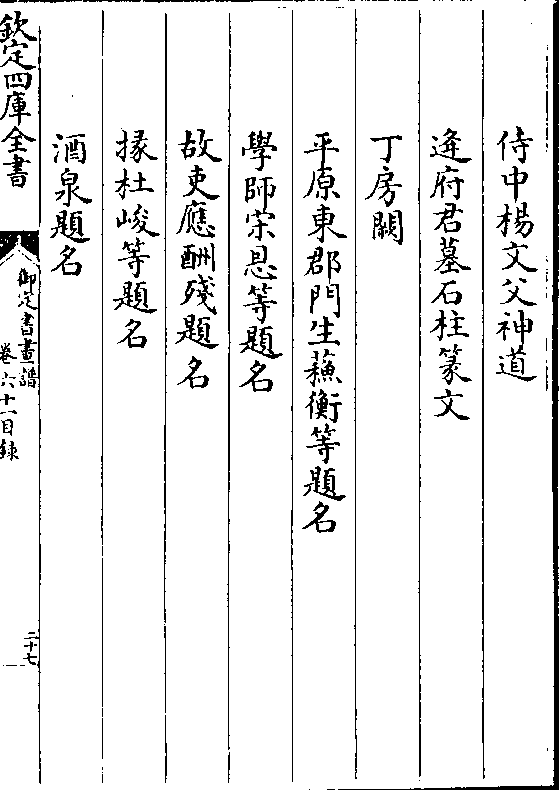 侍中楊文父神道
逄府君墓石柱篆文
丁房闕
平原東郡門生蘓衡等題名
學師宋恩等題名
故吏應酬殘題名
掾杜峻等題名
酒泉題名
欽定四庫全書
御定書畫譜
卷六十一目錄
二十七